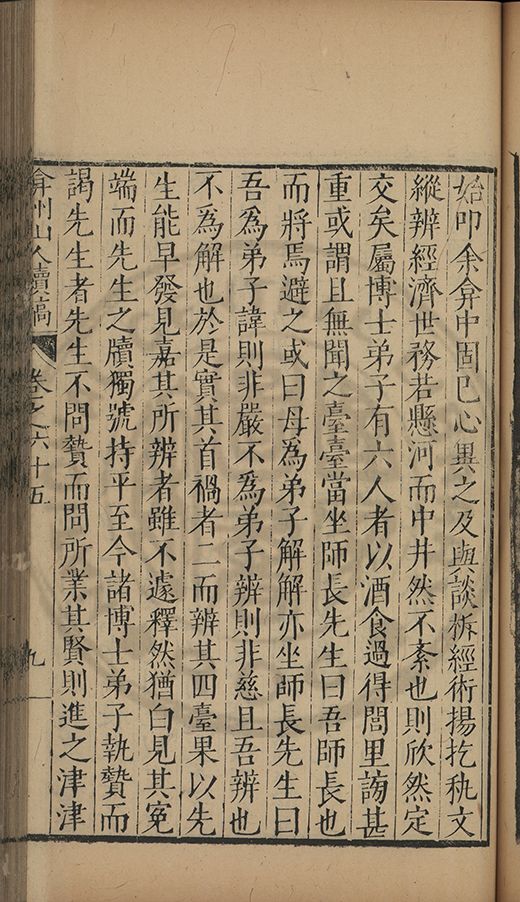 始叩余弇中固已心異之及與談析經術揚扢秇文
縱辨經濟世務若懸河而中井然不紊也則欣然定
交矣屬博士弟子有六人者以酒食過得閭里謗甚
重或謂且無聞之臺臺當坐師長先生曰吾師長也
而將焉避之或曰毋為弟子解解亦坐師長先生曰
吾為弟子諱則非嚴不為弟子辨則非慈且吾辨也
不為解也於是實其首禍者二而辨其四臺果以先
生能早發見嘉其所辨者雖不遽釋然猶白見其冤
端而先生之牘獨號持平至今諸博士弟子執贄而
謁先生者先生不問贄而問所業其賢則進之津津
弇州山人續稿 卷之六十五 九